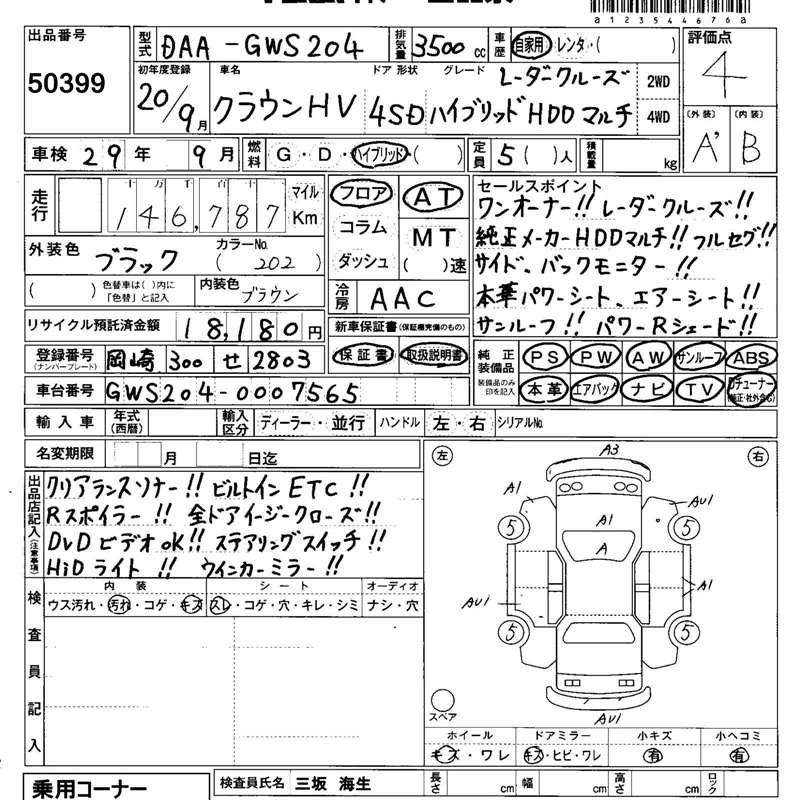 a12354467 6a
出品番号 50399
型式 DAA-GWS204 排気量 3500cc 車歴 自家用・レンタ・( )
初年度登録 20/9月 車名 クラウンHV ドア 形状 4SD グレード レーダクルーズ ハイブリッドHDDマルチ 2WD 4WD
評価点 4
〔外装〕 A' 〔内装〕 B
車検 29年 9月 燃料 G・D・ハイブリッド・( ) 定員 5( )人 積載量 kg
走行 十万千百十 146,787 マイル Km
フロア コラム ダッシュ AT MT ( )速
外装色 ブラック カラーNo. ( 202 )
( ) 色替車は( )内に「色替」と記入 内装色 ブラウン
冷房 AAC
セールスポイント
ワンオーナー!! レーダクルーズ!!
純正メーカーHDDマルチ!! フルセグ!!
サイド、バックモニター!!
本革パワーシート、エアーシート!!
サンルーフ!! パワーRシェード!!
リサイクル預託済金額 18,180円
新車保証書(保証欄完備のもの) 保証書・取扱説明書
登録番号(ナンバープレート) 岡崎 300 せ 2803
純正装備品 装備品のみ印を記入 PS PW AW サンルーフ ABS
本革 エアバック ナビ TV
車台番号 GWS204-0007565
輸入車 年式(西暦) 輸入区分 ディーラー・並行 ハンドル 左・右 シリアルNo.
名変期限 月 日迄
出品店記入(注意事項)
クリアランスソナー!! ビルトインETC!!
Rスポイラー!! 全ドアイージークローズ!!
DVDビデオOK!! ステアリングスイッチ!!
HiDライト!! ウインカーミラー!!
検査員記入
内装 シート オーディオ
ウス汚れ・汚れ・コゲ・キズ スレ・コゲ・穴・キレ・シミ ナシ・穴
左 右
A3
A1 AU1
5 A1 5
A
A1
AU1
5 5
AU1
スペア
ホイール ドアミラー 小キズ 小ヘコミ
キズ・ワレ キズ・ヒビ・ワレ 有 有
乗用コーナー 検査員氏名 三坂 海生 長さ cm 幅 cm 高さ cm ロック